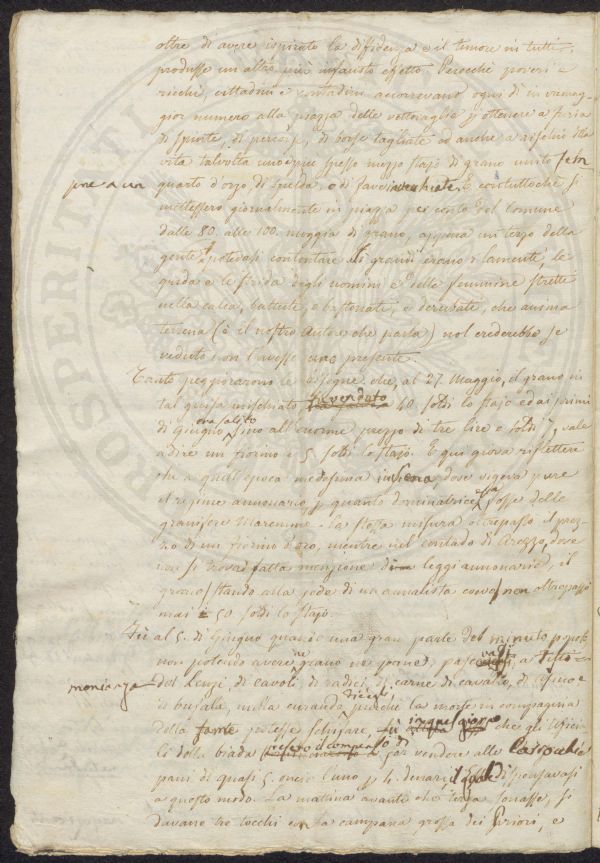 oltre di avere ispirato la diffidenza e il timore in tutti,
produsse un altro più infausto effetto. Perocchè poveri e
ricchi, cittadini e contadini accorrevano ogni dì in
gior numero alla piazza delle vettovaglie p ottenere a furia
di spinte, di percosse, di borse tagliate ed anche a rischio della
vita talvolta uno e più spesso mezzo stajo di grano unito sem
pre a un quarto d'orzo, di spelda, o di fave invecchiate. E contuttochè si
mettessero giornalmente in piazza per conto del Comune
dalle 80. alle 100. moggia di grano, appena un terzo della
gente potevasi contentare. Sì grandi erano i lamenti le
grida e le strida degli uomini e delle femmine strette
nella calca, battute, e bastonate, e derubate, che anima
terrena (è il nostro Autore che parla) nol crederebbe se
veduto non l'avesse presente.
Tanto peggiorarono le bisogne che, al 27. Maggio, il grano in
tal guisa mischiato fu venduto 40 soldi lo stajo ed ai primi
di Giugno era salito sino all'enorme prezzo di tre lire e soldi 7, vale
a dire un fiorino e 5 soldi lo stajo. E qui giova riflettere
che a quell'epoca medesima in Siena, dove vigeva pure
il regime annonario, p quanto dominatrice essa fosse delle
granifere Maremme. La stessa misura oltrepassò il prez
zo di un fiorino d'oro, mentre nel contado di Arezzo, dove
non si trova fatta menzione di leggi annonarie, il
grano (stando alla fede di un annalista coevo) non oltrepassò
mai i 50 soldi lo stajo.
Fu al 5. di Giugno quando una gran parte del minuto popolo
non potendo avere nè grano nè pane, pascevasi, a detto
del Lenzi, di cavoli, di radici, di carne di cavallo, di asino e
di bufala, nulla curando purchè la morse in compagnia
moria
della fame potesse schifare, in quel giorno che gli Ufficia
li della biada presero il compenso di far vendere alle Parrocchie
pani di quasi 5. oncie l'uno p 4. denari, il qual dispensavasi
a questo modo. La mattina avante che terza sonasse, si
davano tre tocchi con la campana grossa dei Priori, e